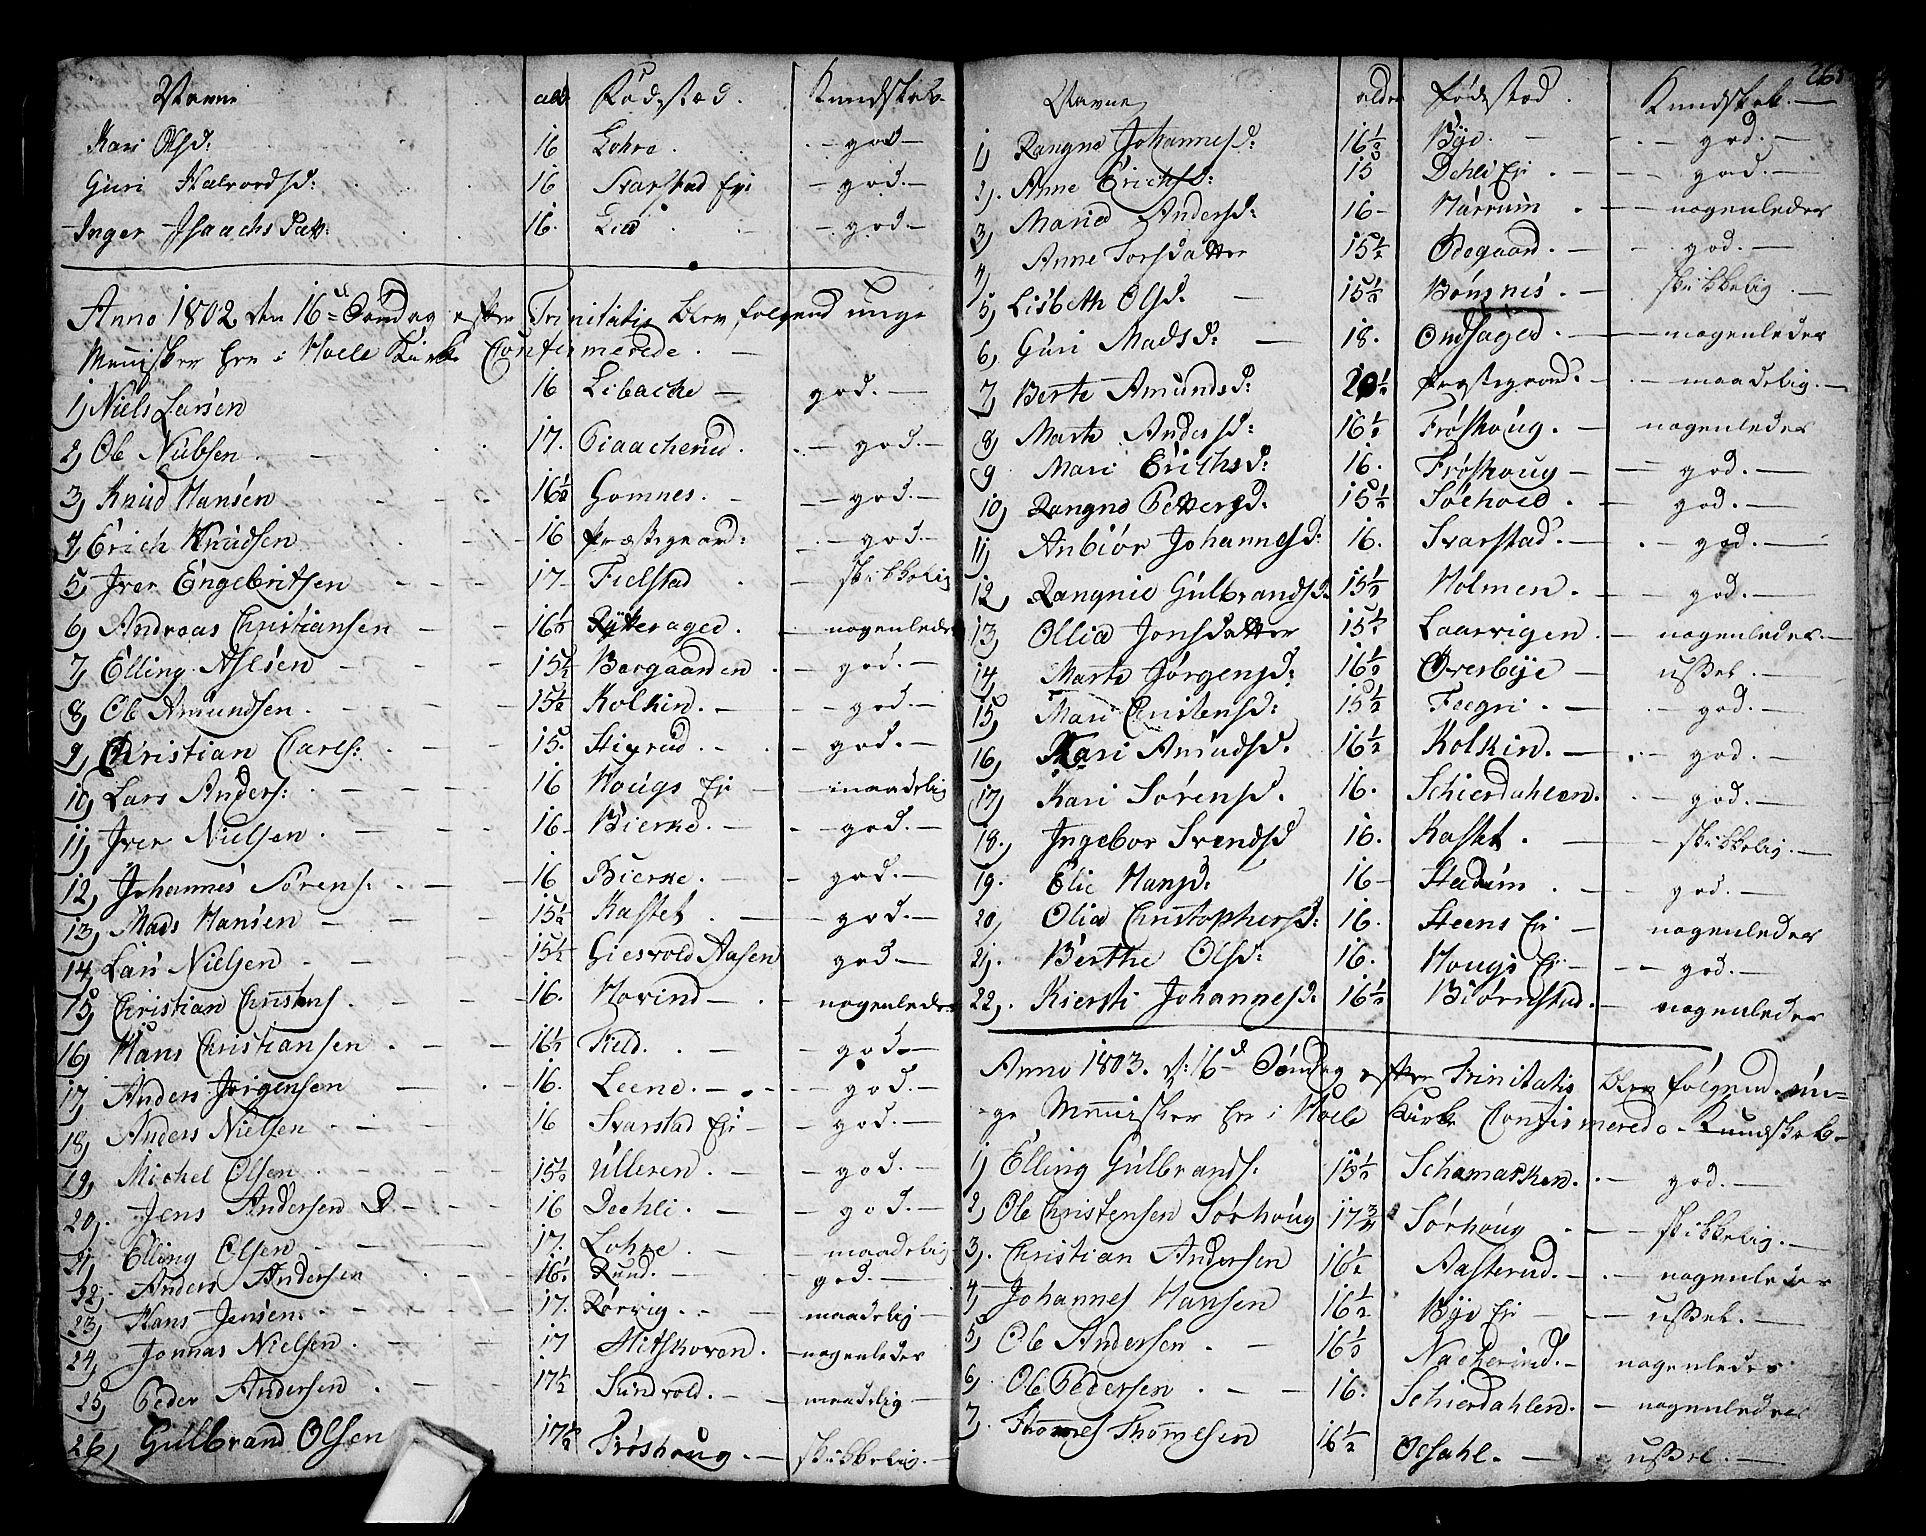 Navne alder Födested. Kundskab
Kari Olsd: 16 Lohre. god
Guri Halvordsd: 16 Svarstad Eje god.
Inger Isaachs Datt: 16. Lie god
Anno 1802 den 16de Söndag efter Trinitatis blev følgend unge
Mennisker her i Hole Kirke Confirmerede.
1, Niels Larsen 16 Libacke god.
2, Ole Nubsen 17. Piaacherud god.
3, Knud Hansen 16½ Gomnes. god.
4, Erich Knudsen 16 Præstegaard: god.
5, Iver Engebritsen 17 Fielstad skikkelig
6, Andreas Christiansen 16½ Rytteraged. nogenledes
7, Elling Aslesen 15½ Borgaarden god.
8, Ole Amundsen. 15½ Kolkin. god.
9, Christian Carls: 15. Stigrud. god.
10, Lars Anders: 16 Hougs Eje maadelig
11, Iver Nielsen. 16 Bierke. god.
12, Johannes Sörens: 16 Bierke. god.
13, Mads Hansen 15½ Kastet. god.
14, Lars Nielsen 15½ Giesvold Aasen god.
15, Christian Christens. 16. Hovind nogenledes
16, Hans Christiansen 16½ Field. god.
17, Anders Jörgensen 16. Leene. god.
18, Anders Nielsen 16 Svarstad Eje god.
19, Michel Olsen 15½ Ulleren. god.
20, Jens Andersen D 16 Dechli. god.
21, Elling Olsen 17. Lohre. maadelig
22, Anders Andersen 16½ Rund. god.
23, Hans Jensen. 17. Rörvig. maadelig
24, Jonnas Nielsen 17 nogenledes
25, Peder Andersen 17½ Sundvold. maadelig
26, Gulbrand Olsen 17½ Fröshoug. skikkelig.
Navne alder födested. Kundskab. 265
1, Rangne Johannesd: 16½ Bye. god.
2, Anne Erichsd: 15 Dehli Eje god.
3, Marie Andersd: 16 Harrum nogenledes
4, Anne Torsdatter 15½ Ödegaard. god.
5, Lisbeth Olsd. 15½ Bönsnes. skikkelig.
6, Guri Madsd: 18. Ondsaged nogenledes
7, Berte Amundsd: 20½ Præstegaard. maadelig.
8, Marte Andersd: 16½ Fröshoug. nogenledes
9 Mari Erichsd: 16. Fröshoug god.
10, Rangne Pettersd. 15½ Solhoed god.
11, Anbiör Johannesd: 16. Svarstad. god.
12, Rangnie Gulbrandsd. 15½ Holmen. god.
13, Ollia Jonsdatter 15½ Laarvigen nogenledes.
14, Marte Jörgensd: 16½ Øverbye ussel.
15, Mari Christensd: 15½ Fegri. god.
16, Kari Amundsd. 16½ Kolkin. god.
17, Kari Sörensd. 16. Schierdahlen. god.
18. Ingebor Svendsd 16. Kastet. skikkelig.
19. Elie Hansd. 16 Stadum. god.
20, Olia Christophersd: 16. Steens Eje nogenledes
21. Berthe Olsd: 16. Hougs Eje god.
22. Kiersti Johannesd: 16½ Biörnstad. nogenledes
Anno 1803. d: 16de Söndag efter Trinitatis blev følgend un-
ge Mennisker her i Hole Kirke Confirmerede. Kundskab.
1, Elling Gulbrands: 15½ Schamarken. god.
2, Ole Christensen Sörhoug 17¾ Sörhoug skikkelig.
3. Christian Andersen 16½ Aasterud. nogenledes
4, Johannes Hansen 16½ Bye Eje ussel.
5, Ole Andersen. 16½ Nacherud. nogenledes
6, Ole Pedersen. 16. Schierdahlen. nogenledes
7. Thomes Thomesen 16½ Opsahl. ussel.